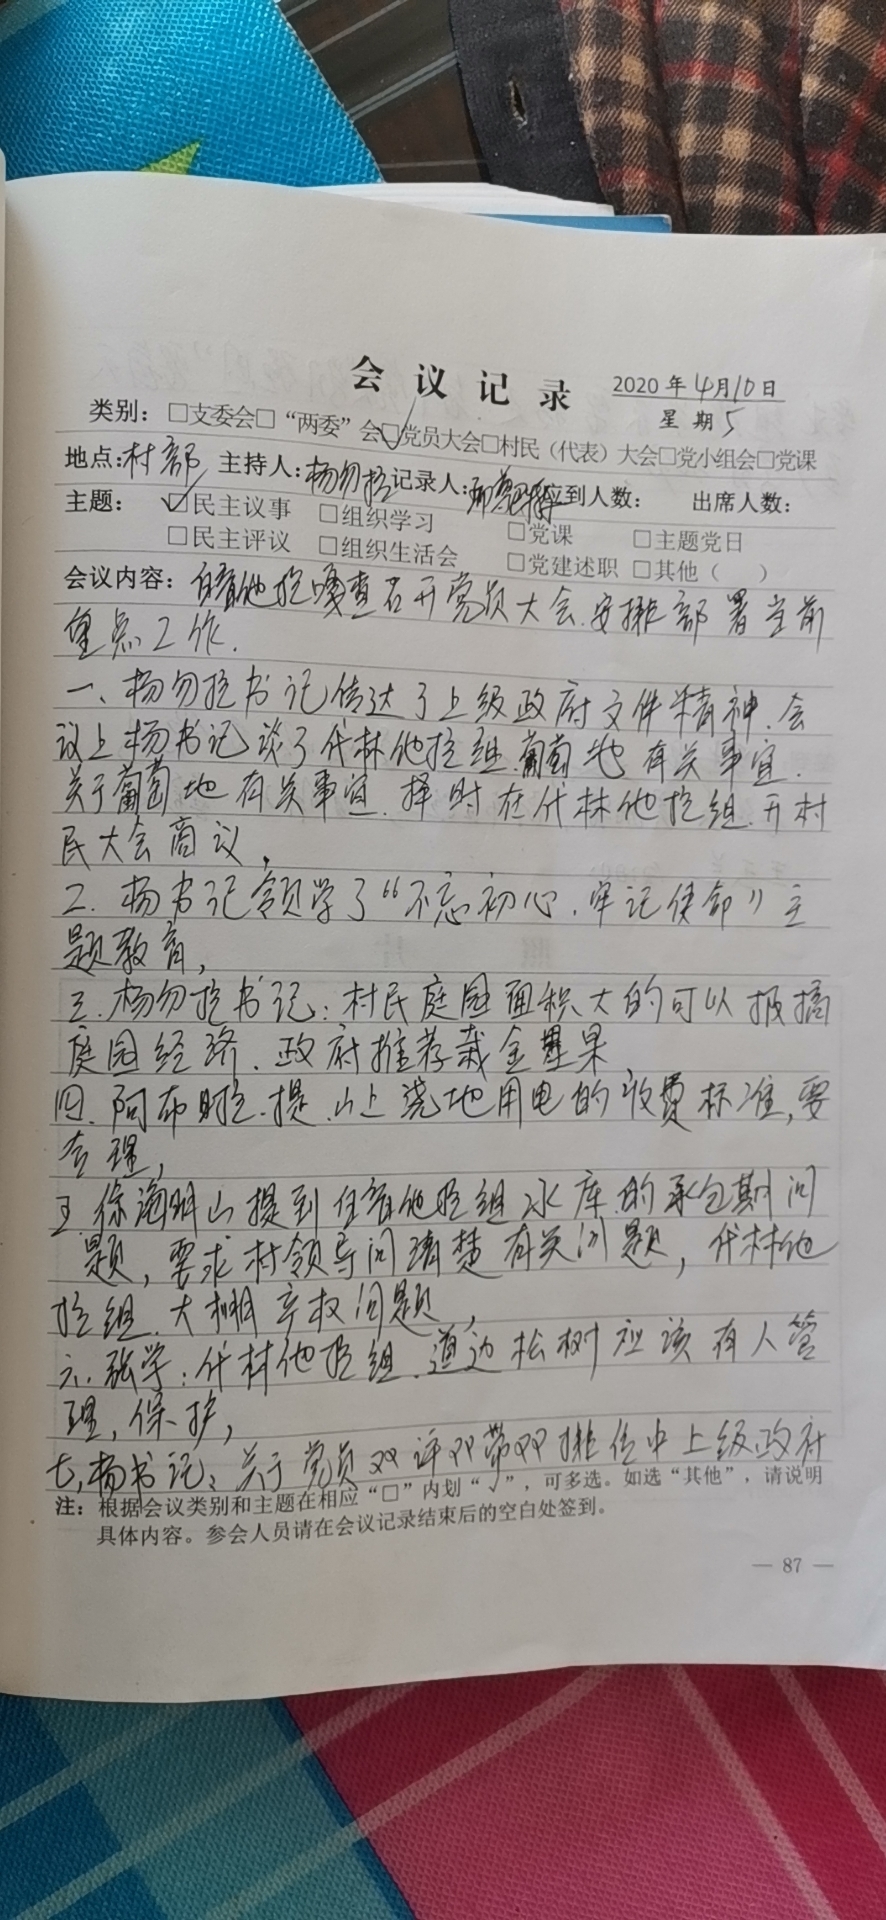 会 议 记 录
2020 年 4月10日
星 期 5
类别：□支委会□“两委”会☑党员大会□村民（代表）大会□党小组会□党课
地点：村部 主持人：杨勿拉 记录人： 应到人数： 出席人数：
主题：☑民主议事 □组织学习 □党课 □主题党日
□民主评议 □组织生活会 □党建述职 □其他（ ）
会议内容：他拉嘎查召开党员大会.安排部署当前
重点工作.
一、杨勿拉书记传达了上级政府文件精神.会
议上杨书记谈了代林他拉组.葡萄地有关事宜.
关于葡萄地有关事宜.择时在代林他拉组.开村
民大会商议,
二.杨书记领学了“不忘初心.牢记使命”主
题教育,
三.杨勿拉书记：村民庭园面积大的可以报搞
庭园经济.政府推荐栽金果
四.阿布.提.山上浇地用电的收费标准,要
合理,
五 徐海明山提到他拉组水库.的承包期问
题，要求村领导问清楚有关问题，代林他
拉组.大棚产权问题,
六.张学：代林他拉组.道边松树应该有人管
理,保护,
七,杨书记：关于党员双评双带双推传中上级政府
注：根据会议类别和主题在相应“□”内划“√”，可多选。如选“其他”，请说明
具体内容。参会人员请在会议记录结束后的空白处签到。
— 87 —